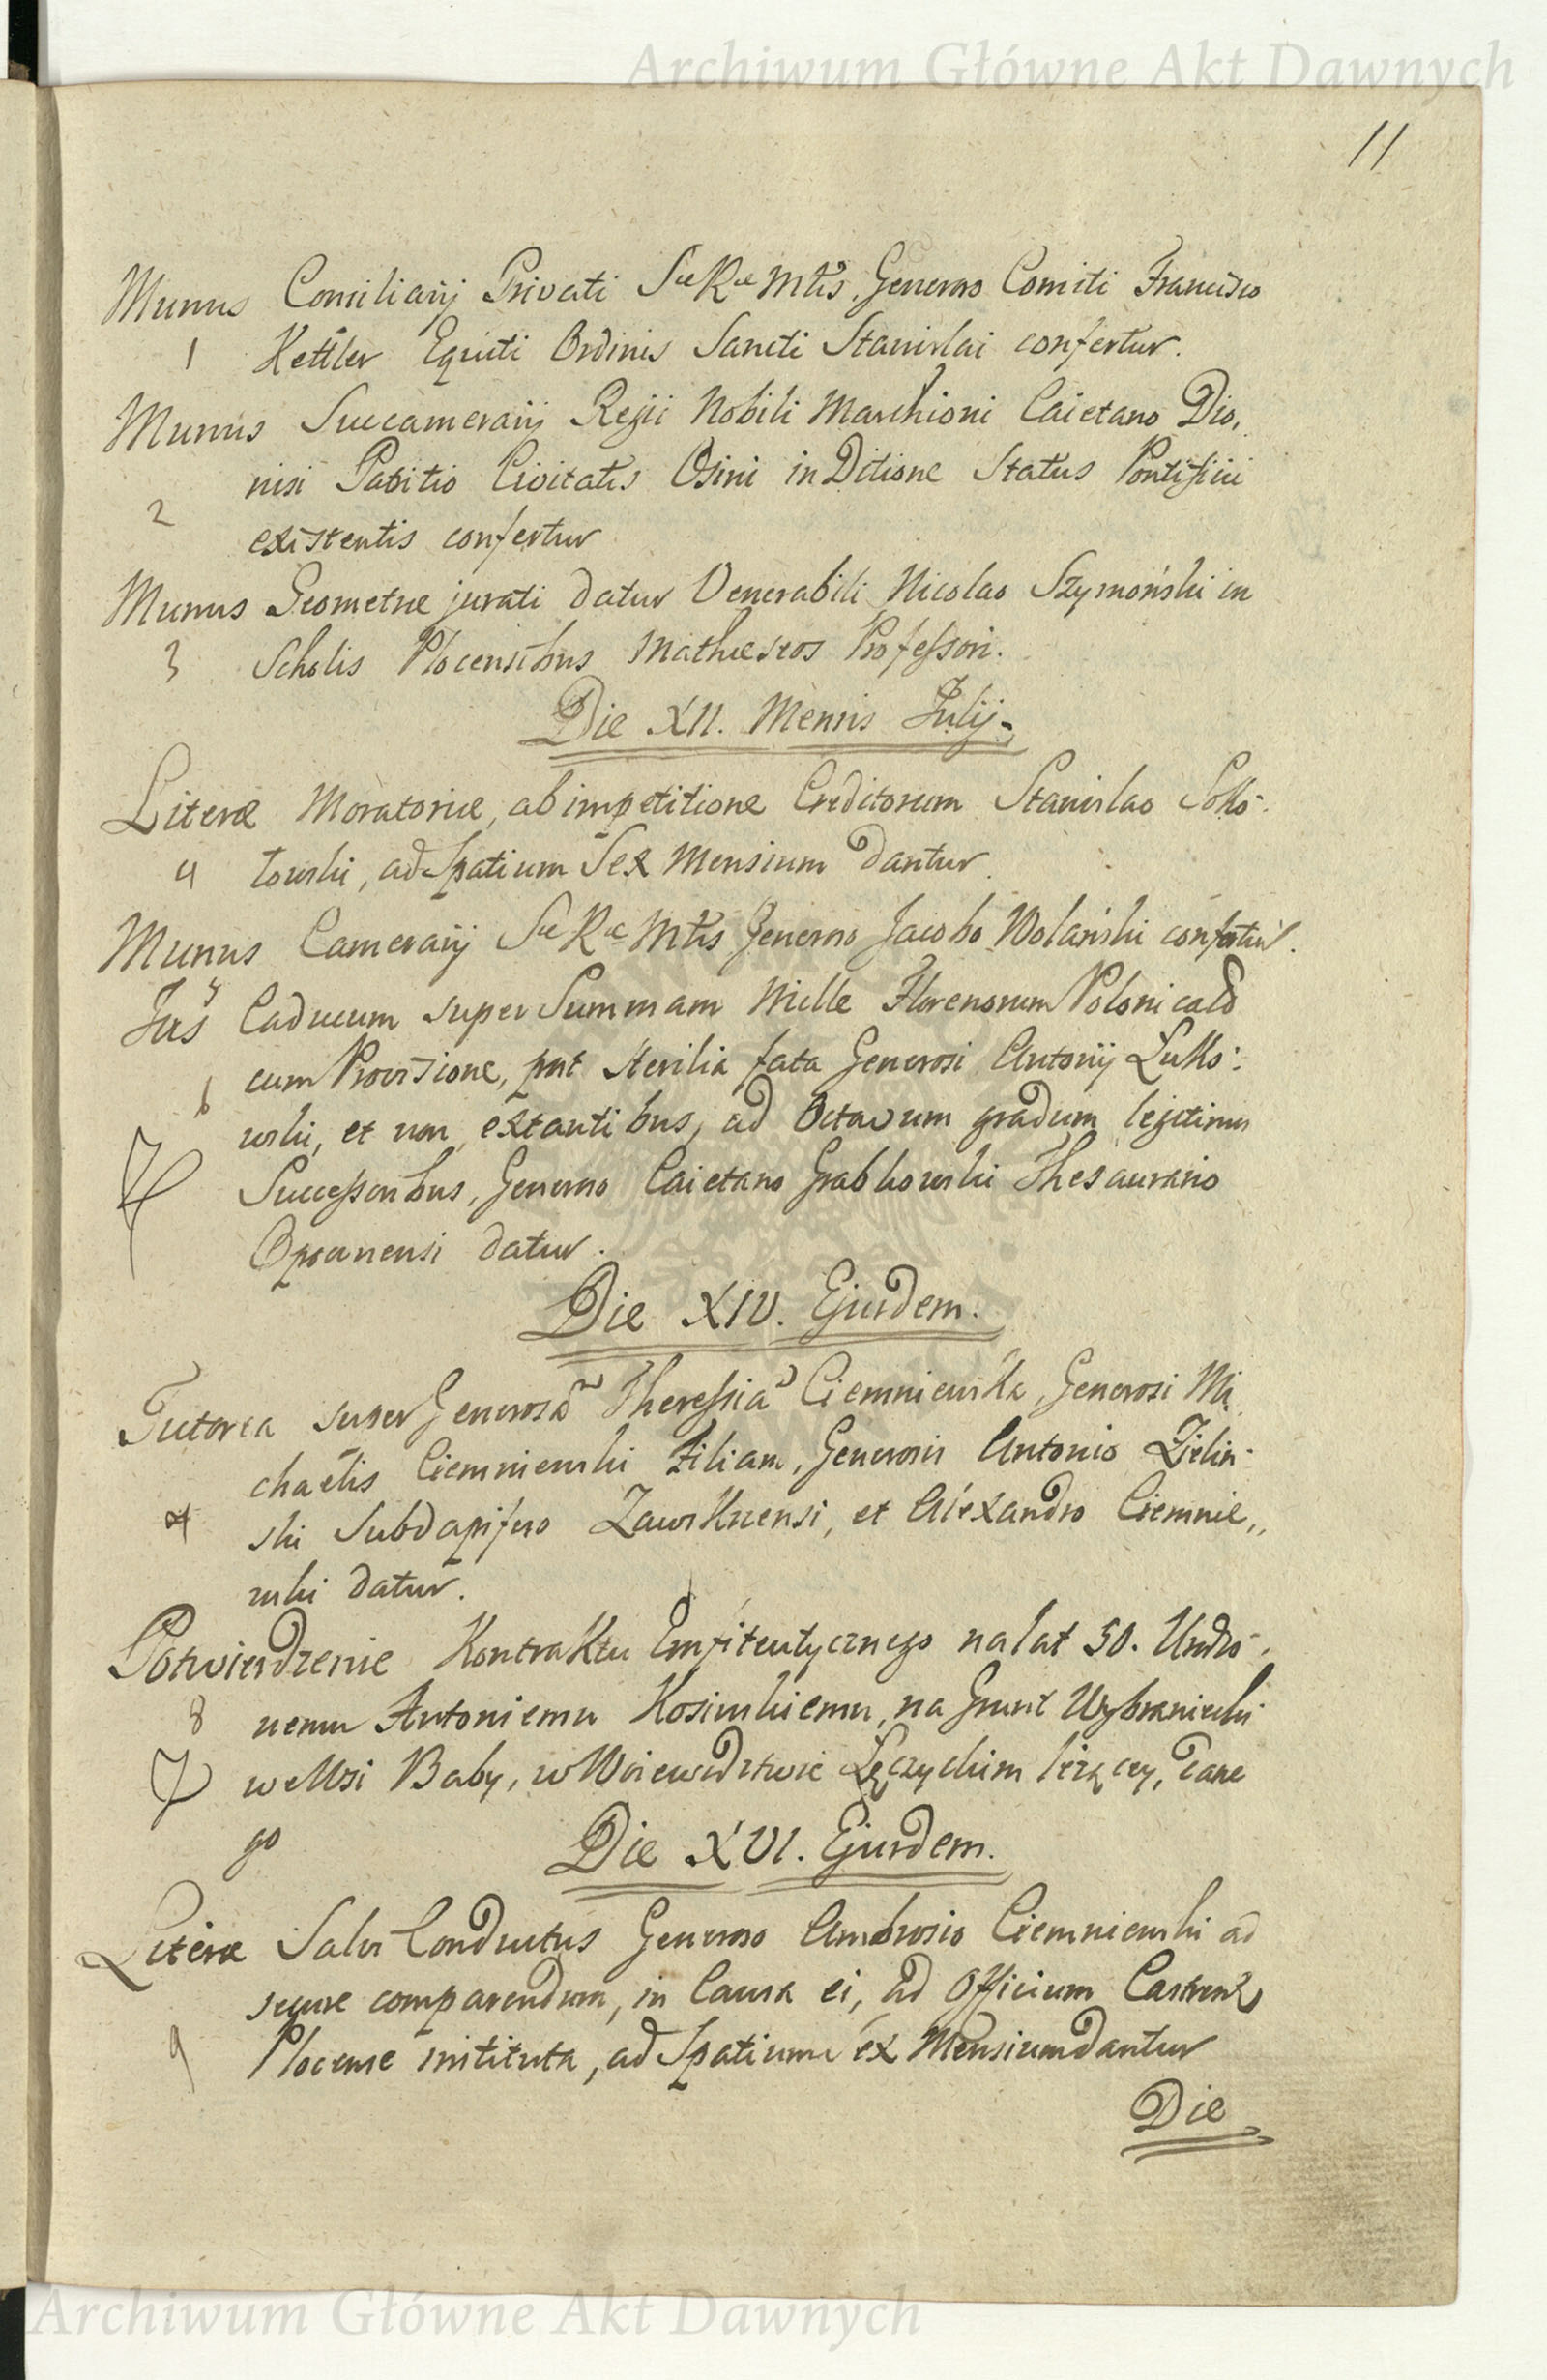 Archiwum Główne Akt Dawnych
11
Munus Consiliarij Privati Sae Rae Mtis. Generoso Comiti Francisco
1 Kettler Equiti Ordinis Sancti Stanislai confertur.
Munus Succamerarij Regii Nobili Marchioni Caietano Dio,
nisi Patitio Civitatis Osini in Ditione Status Pontificii
2 existentis confertur
Munus Geometrae jurati datur Venerabili Nicolao Szymoński in
3 Scholis Plocensibus Matheseos Professori.
Die XII. Mensis Julij.
Literae Moratoriae, ab impetitione Creditorum Stanislao Soko-
4 lowski, ad Spatium Sex Mensium dantur.
Munus Camerarij Sae Rae Mtis Generoso Jacobo Wolański confertur.
5
Jus Caducum super Summam Mille Florenorum Polonicald
6 cum Provisione, post sterilia fata Generosi Antonij Lutko:
wski, et non extantibus, ad Octavum gradum legitimis
Successoribus, Generoso Caietano Grabkowski Thesaurario
datur.
Die XIV. Ejusdem.
Tutoria super Generosam Theressiam Ciemniewska, Generosi Mi,
chaëlis Ciemniewski Filiam, Generosis Antonio Zielin-
7 ski Subdapifero Zawskrensi, et Alexandro Ciemnie,,
wski datur.
Potwierdzenie Kontraktu Emfiteutycznego na lat 50. Urodzo-
8 nemu Antoniemu Kosinskiemu, na Grunt Wybraniecki
we Wsi Baby, w Woiewodztwie Łęczyckim leżącey, dane
go
Die XVI. Ejusdem.
Literae Salvi Conductus Generoso Ambrosio Ciemniewski ad
secure comparendum, in Causa ei, ad Officium Castrense
9 Plocense instituta, ad Spatium sex Mensium dantur
Die
Archiwum Główne Akt Dawnych